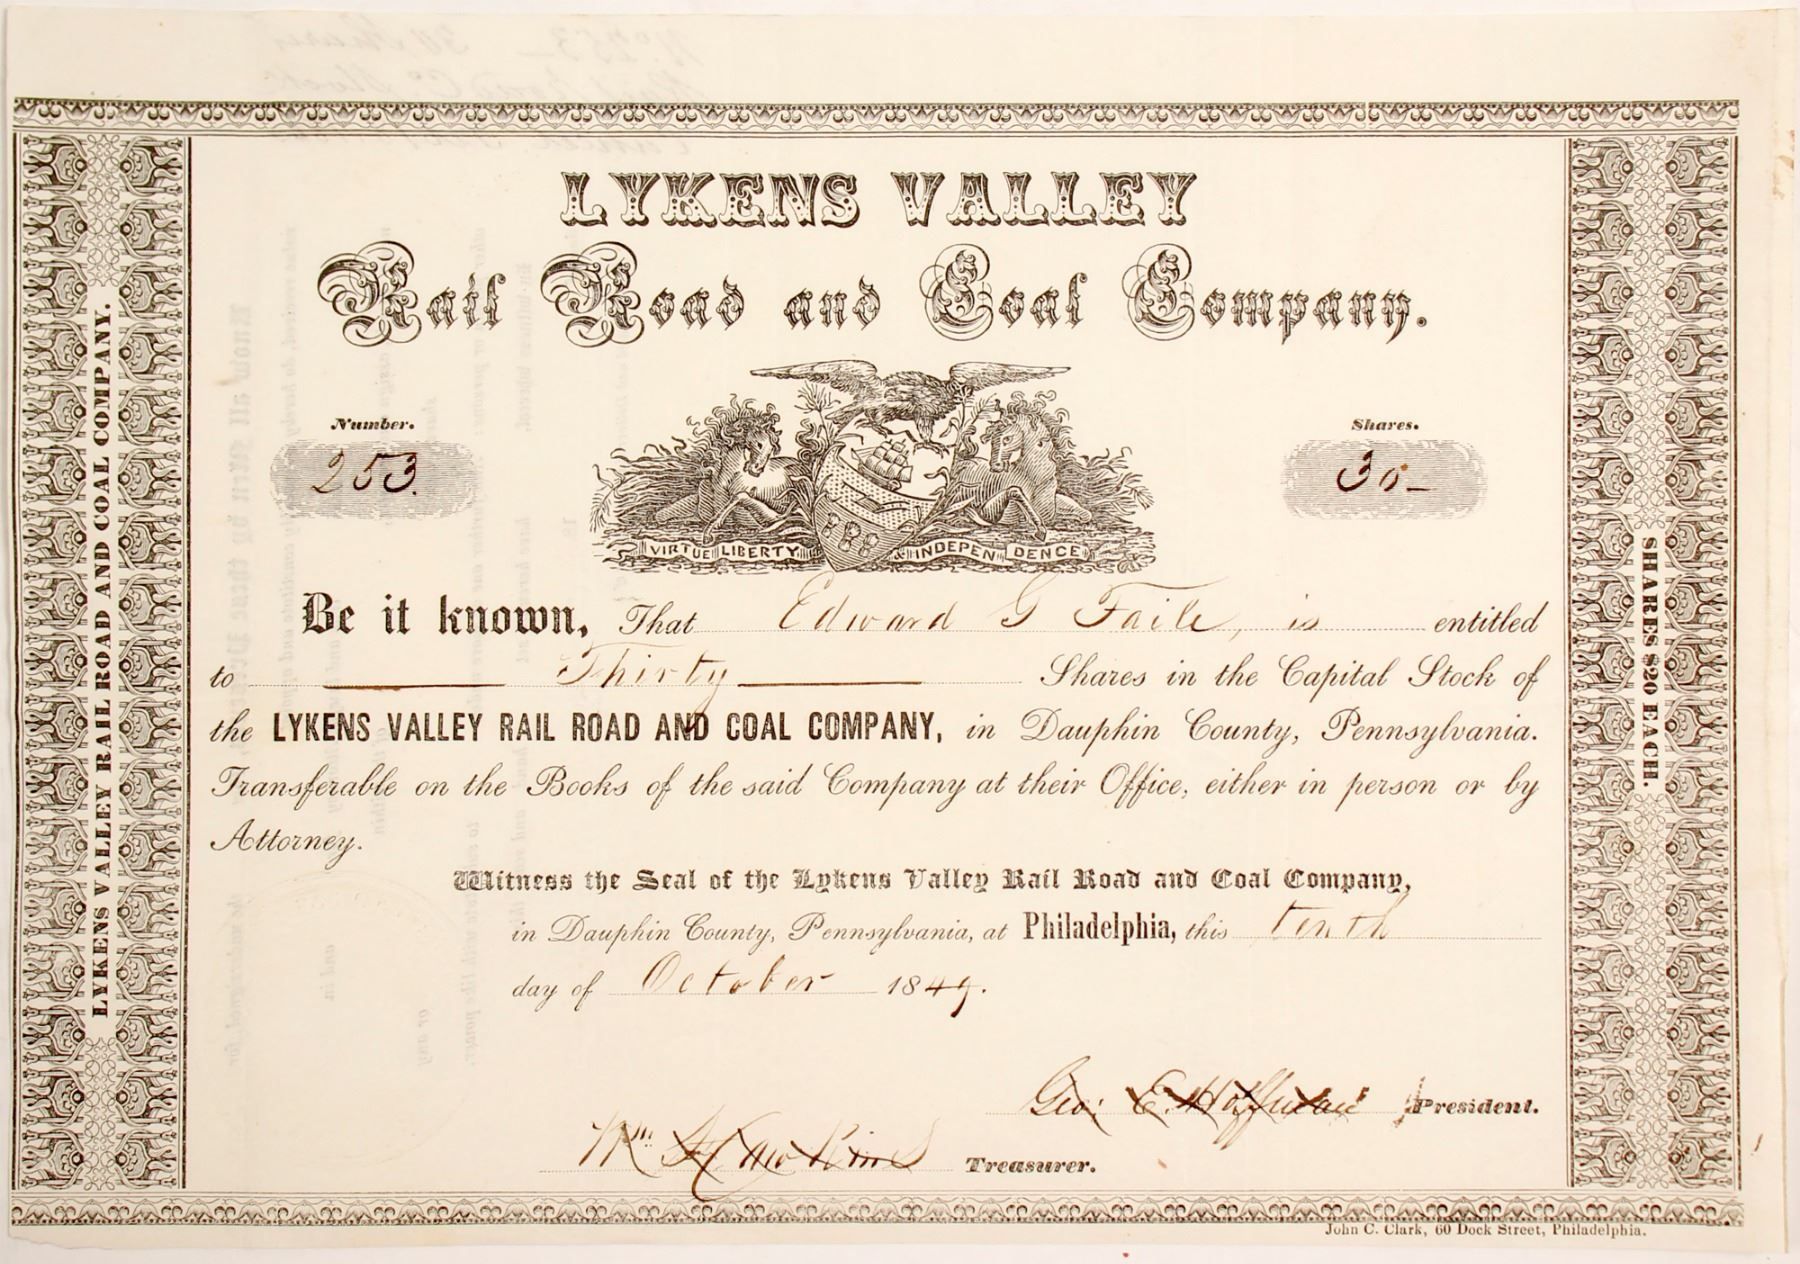 LYKENS VALLEY
Rail Road and Coal Company.
Number.
253.
Shares.
30-
VIRTUE LIBERTY & INDEPENDENCE
Be it known, That Edward G Faile, is entitled
to Thirty Shares in the Capital Stock of
the LYKENS VALLEY RAIL ROAD AND COAL COMPANY, in Dauphin County, Pennsylvania.
Transferable on the Books of the said Company at their Office, either in person or by
Attorney.
Witness the Seal of the Lykens Valley Rail Road and Coal Company,
in Dauphin County, Pennsylvania, at Philadelphia, this tenth
day of October 1849.
Geo: E. Hoffman President.
Wm Treasurer.
LYKENS VALLEY RAIL ROAD AND COAL COMPANY.
SHARES $20 EACH.
John C. Clark, 60 Dock Street, Philadelphia.